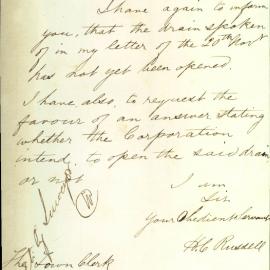 I have again to inform
you, that the drain spoken
of in my letter of the 20th Novr
has not yet been opened.
I have also, to request the
favour of an answer stating
whether the Corporation
intend to open the said drain
or not
I am
Sir
Your Obedient Servant
H C Russell
The Town Clerk